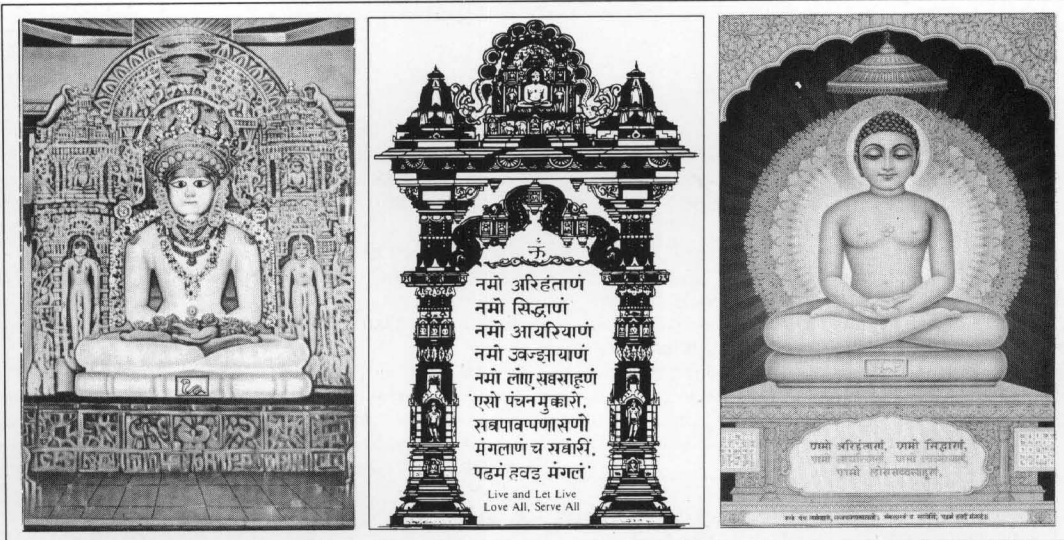 ॐ
नमो अरिहंताणं
नमो सिद्धाणं
नमो आयरियाणं
नमो उवज्झायाणं
नमो लोए सव्वसाहूणं
एसो पंचनमुक्कारो,
सव्वपावप्पणासणो
मंगलाणं च सव्वेसिं,
पढमं हवइ मंगलं
Live and Let Live
Love All, Serve All
णमो अरिहंताणं, णमो सिद्धाणं,
णमो णमो
णमो लोए सव्वसाहूणं,